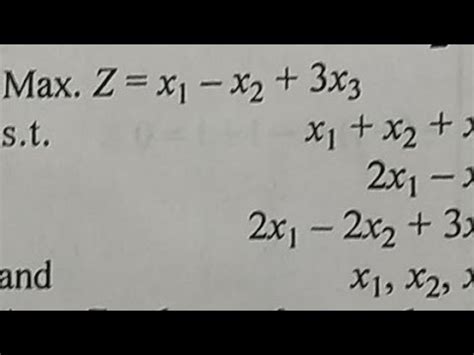 Max. Z = x₁ − x₂ + 3x₃
s.t. x₁ + x₂ +
2x₁ −
2x₁ − 2x₂ + 3
and x₁, x₂,